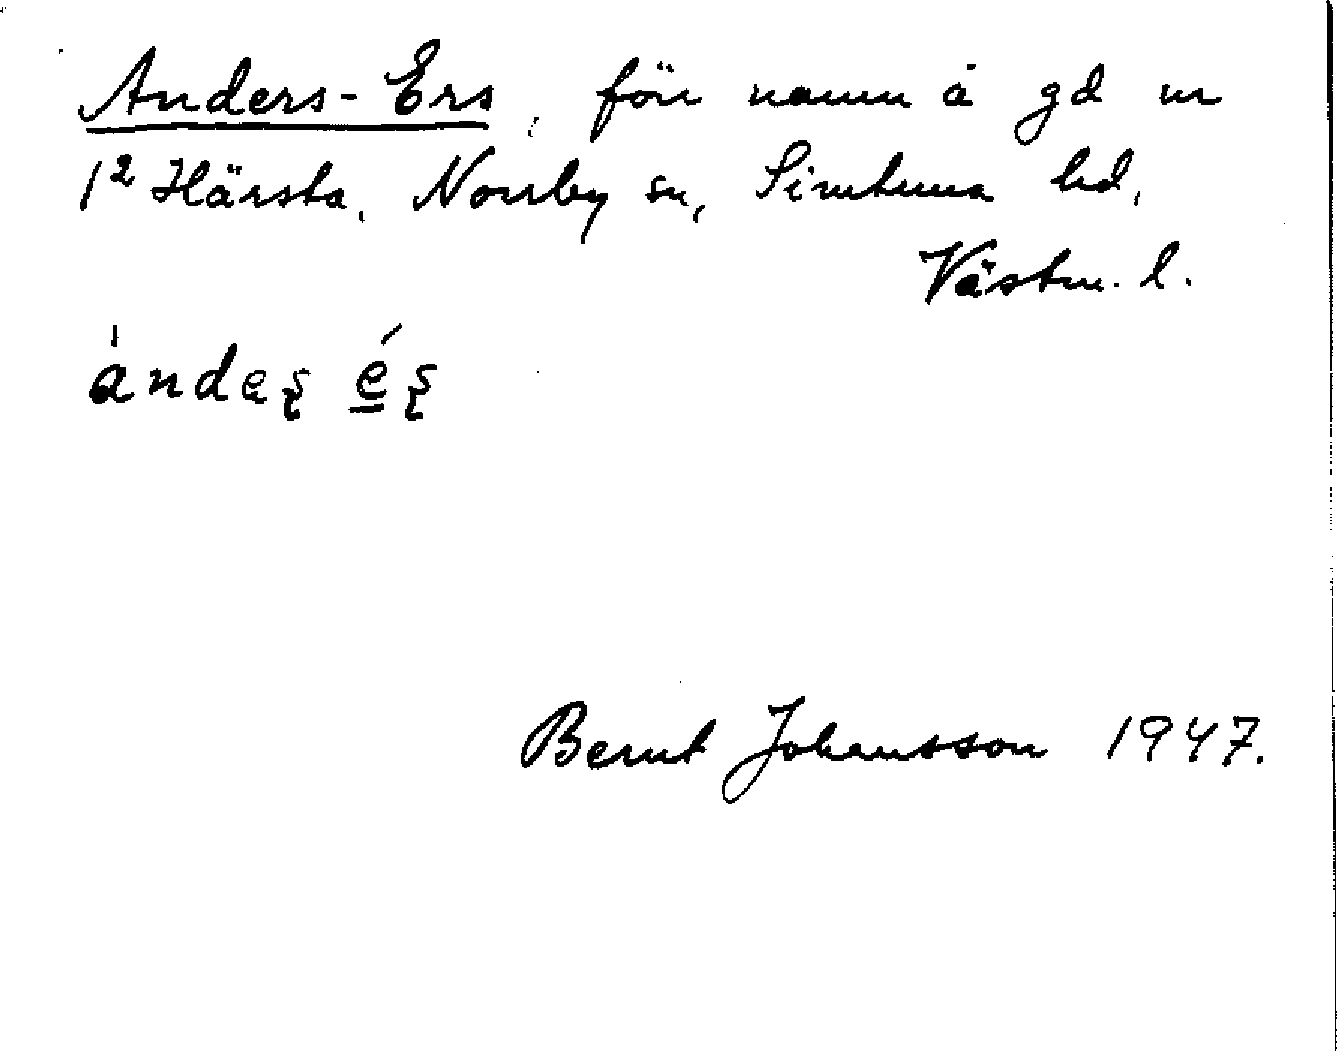 Anders-Ers, förr namn å gd nr
1² Härsta, Norrby sn, Simtuna hd,
Västm. l.
ándaʂ é̲ʂ
Bernt Johansson 1947.